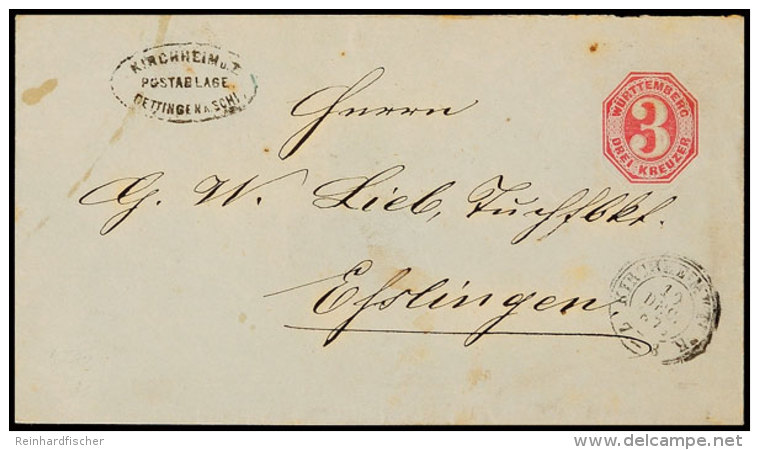 KIRCHHEIM u. T.
POSTABLAGE
OETTINGEN A SCHL
WÜRTTEMBERG
3
DREI KREUZER
Herrn
G. W. Lieb, Tuchfbkt.
Eßlingen
KIRCHHEIM
12
DEC
Reinhardfischer
delcampe.net